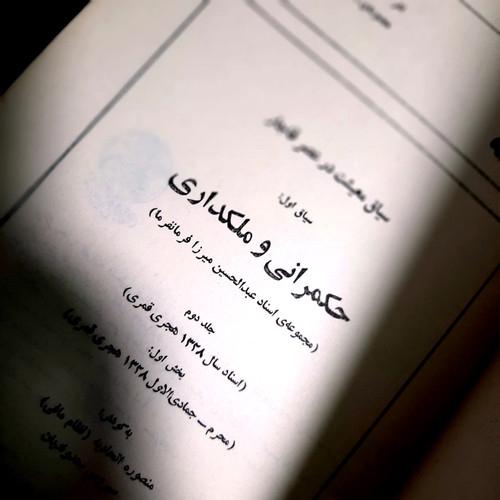 سیاق معیشت در عصر قاجار
سیاق اول:
حکمرانی و ملکداری
(مجموعه‌ی اسناد عبدالحسین میرزا فرمانفرما)
جلد دوم
(اسناد سال ۱۳۲۸ هجری قمری)
بخش اول:
(محرم – جمادی‌الاول ۱۳۲۸ هجری قمری)
به کوشش:
منصوره اتحادیه (نظام مافی)